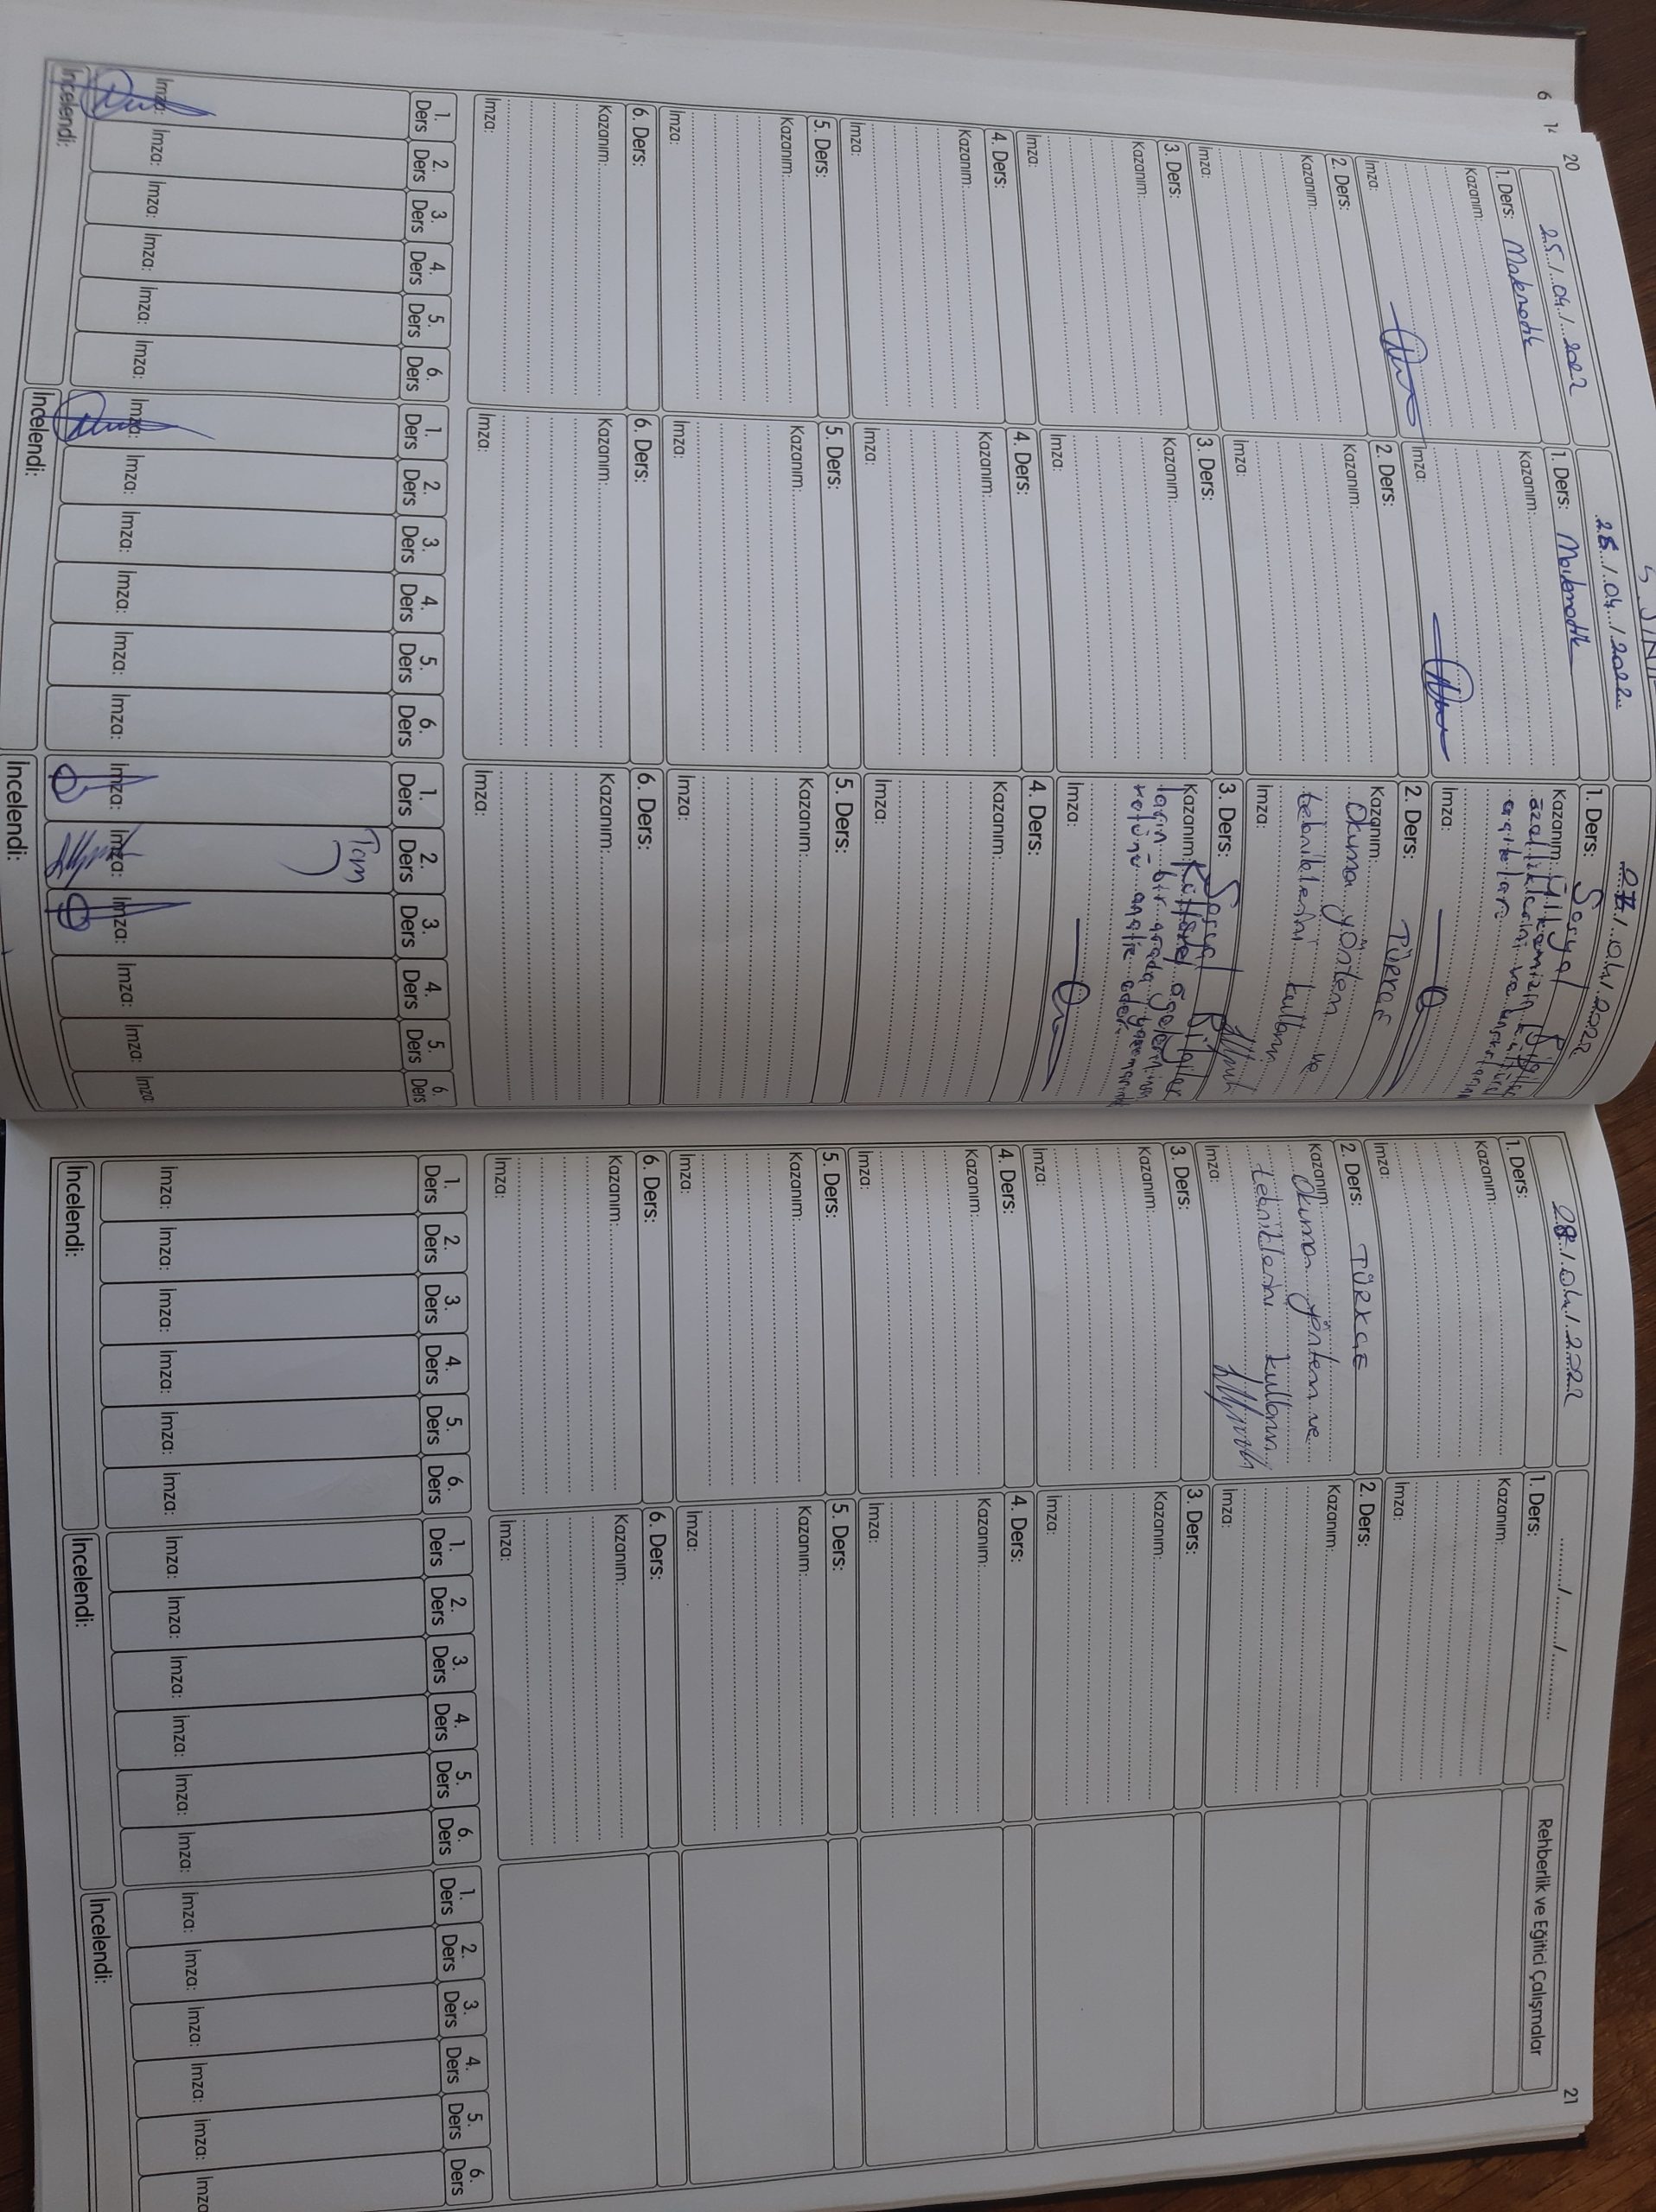 20
25/04/2022
1. Ders: Matematik
Kazanım:
İmza:
2. Ders:
Kazanım:
İmza:
3. Ders:
Kazanım:
İmza:
4. Ders:
Kazanım:
İmza:
5. Ders:
Kazanım:
İmza:
6. Ders:
Kazanım:
İmza:
1. Ders 2. Ders 3. Ders 4. Ders 5. Ders 6. Ders
İmza: İmza: İmza: İmza: İmza: İmza:
İncelendi:
26/04/2022
1. Ders: Matematik
Kazanım:
İmza:
2. Ders:
Kazanım:
İmza:
3. Ders:
Kazanım:
İmza:
4. Ders:
Kazanım:
İmza:
5. Ders:
Kazanım:
İmza:
6. Ders:
Kazanım:
İmza:
1. Ders 2. Ders 3. Ders 4. Ders 5. Ders 6. Ders
İmza: İmza: İmza: İmza: İmza: İmza:
İncelendi:
27/04/2022
1. Ders: Sosyal Bilgiler
Kazanım: Ülkemizin kültürel
özelliklerini ve
İmza:
2. Ders: TÜRKÇE
Kazanım:
Okuma yöntem ve
tekniklerini kullanır.
İmza:
3. Ders: Sosyal Bilgiler
Kazanım: Kültürel ögelerin insan
ların bir arada yaşamasındaki
rolünü analiz eder.
İmza:
4. Ders:
Kazanım:
İmza:
5. Ders:
Kazanım:
İmza:
6. Ders:
Kazanım:
İmza:
1. Ders 2. Ders 3. Ders 4. Ders 5. Ders 6. Ders
Tam
İmza: İmza: İmza: İmza: İmza: İmza:
İncelendi:
28/04/2022
1. Ders:
Kazanım:
İmza:
2. Ders: TÜRKÇE
Kazanım:
Okuma yöntem ve
tekniklerini kullanır.
İmza:
3. Ders:
Kazanım:
İmza:
4. Ders:
Kazanım:
İmza:
5. Ders:
Kazanım:
İmza:
6. Ders:
Kazanım:
İmza:
1. Ders 2. Ders 3. Ders 4. Ders 5. Ders 6. Ders
İmza: İmza: İmza: İmza: İmza: İmza:
İncelendi:
......../......../..........
1. Ders:
Kazanım:
İmza:
2. Ders:
Kazanım:
İmza:
3. Ders:
Kazanım:
İmza:
4. Ders:
Kazanım:
İmza:
5. Ders:
Kazanım:
İmza:
6. Ders:
Kazanım:
İmza:
1. Ders 2. Ders 3. Ders 4. Ders 5. Ders 6. Ders
İmza: İmza: İmza: İmza: İmza: İmza:
İncelendi:
21
Rehberlik ve Eğitici Çalışmalar
1. Ders 2. Ders 3. Ders 4. Ders 5. Ders 6. Ders
İmza: İmza: İmza: İmza: İmza: İmza
İncelendi: